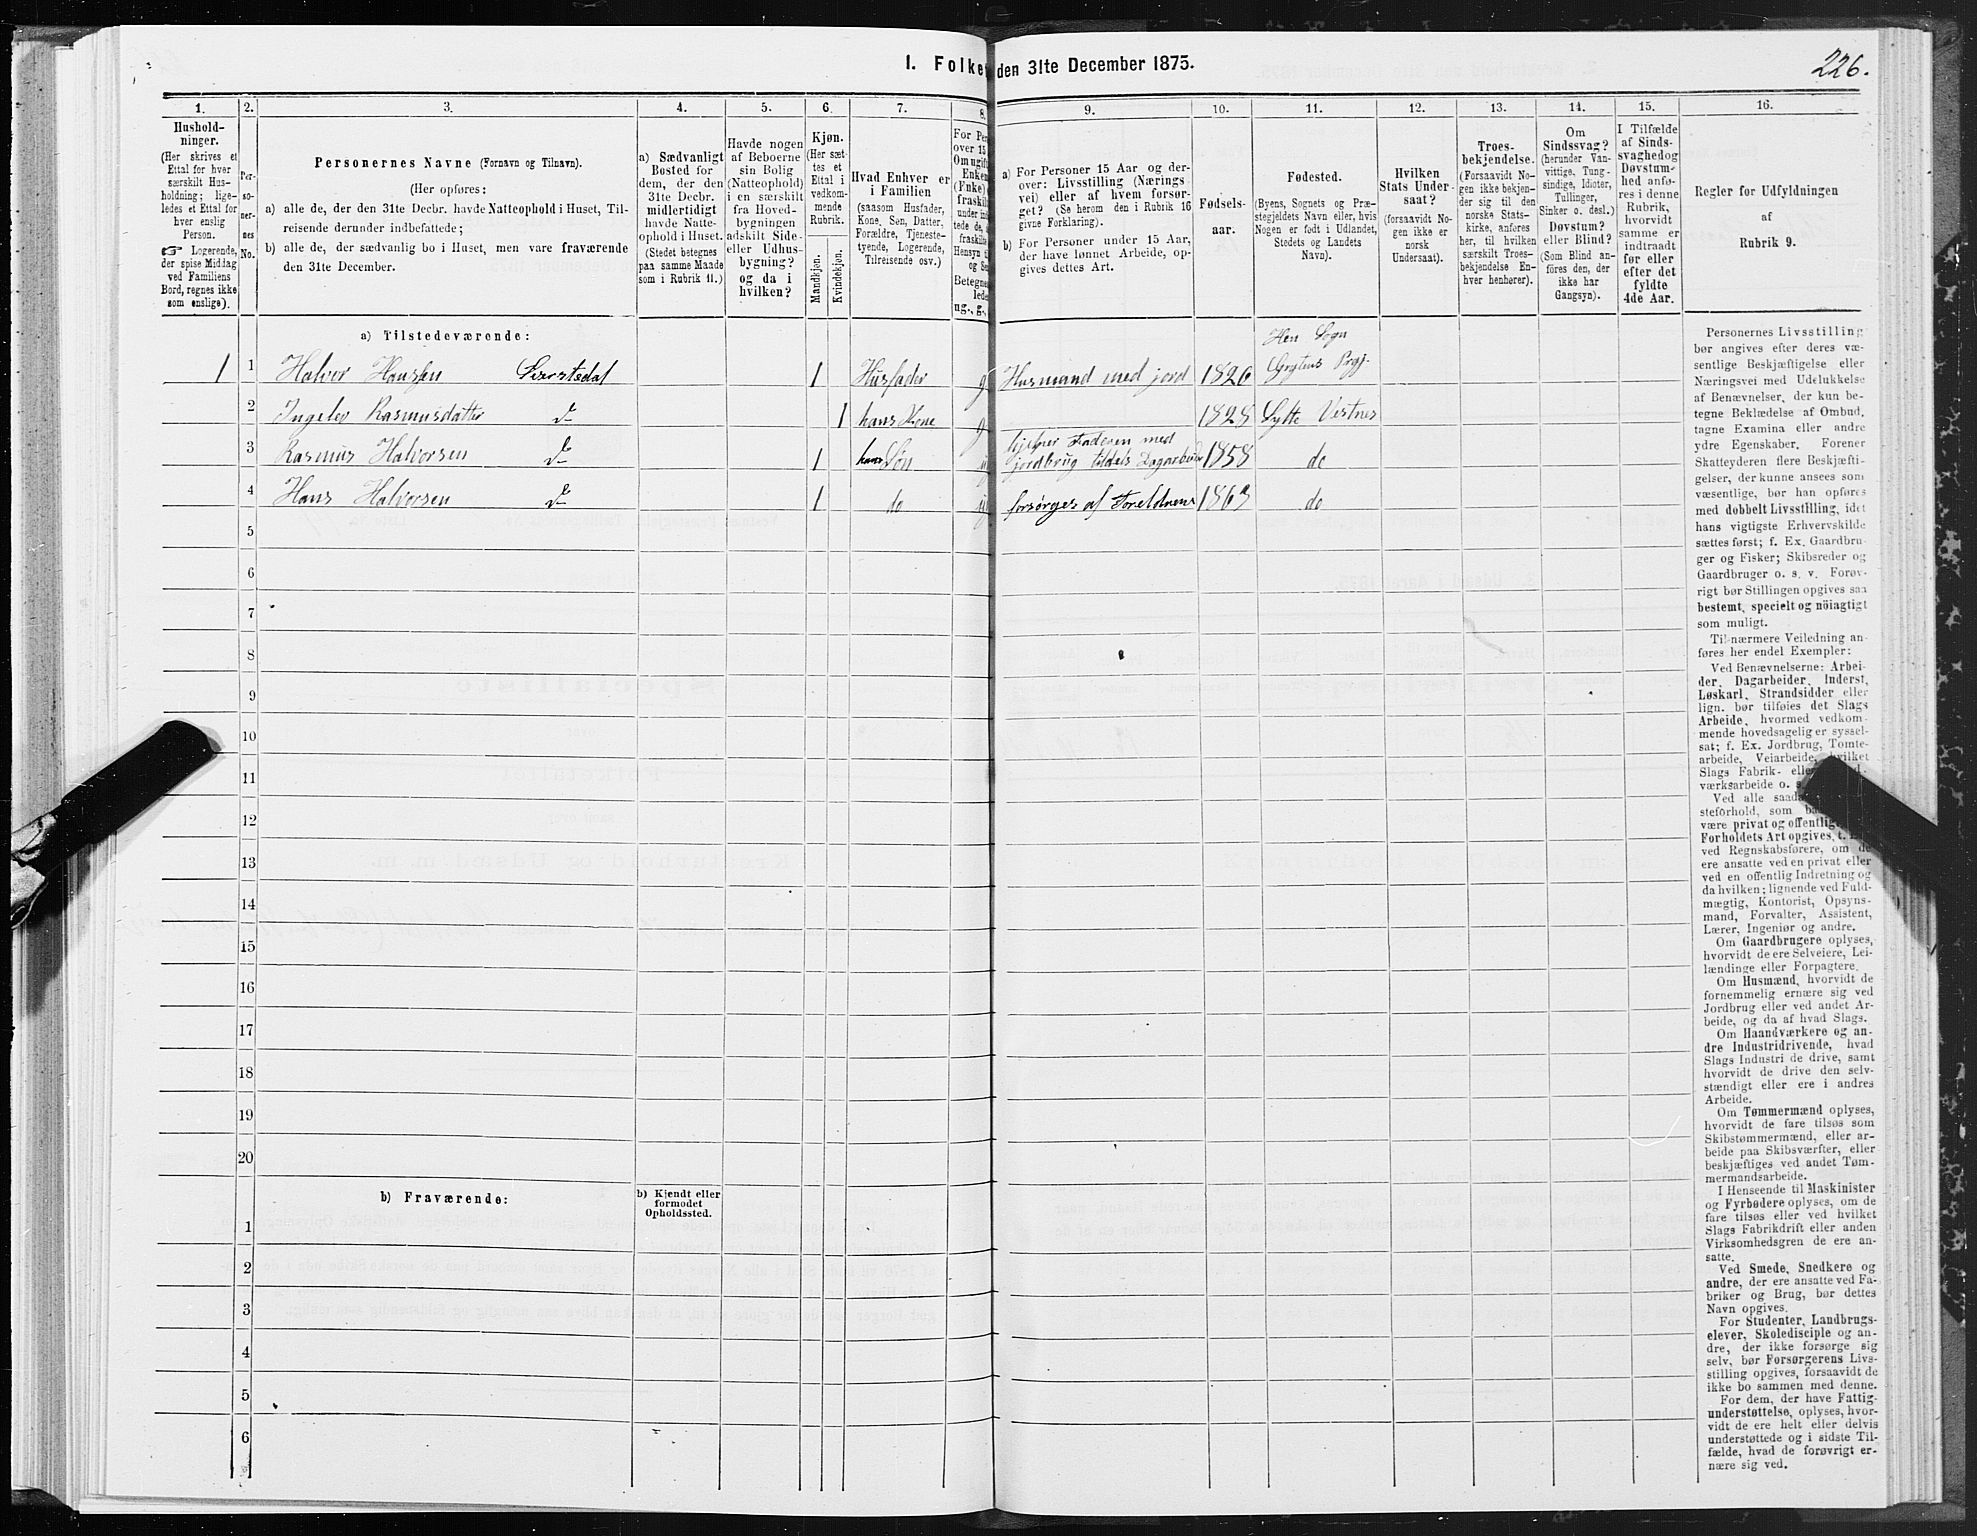 I. Folke den 31te December 1875.
226.
1.
2.
3.
4.
5.
6.
7.
8.
9.
10.
11.
12.
13.
14.
15.
16.
Hushold-
ninger.
(Her skrives et
Ettal for hver
særskilt Hus-
holdning; lige-
ledes et Ettal for
hver enslig
Person.
☞ Logerende,
der spise Middag
ved Familiens
Bord, regnes ikke
som enslige).
Per-
so-
ner-
nes
No.
Personernes Navne (Fornavn og Tilnavn).
(Her opføres:
a) alle de, der den 31te Decbr. havde Natteophold i Huset, Til-
reisende derunder indbefattede;
b) alle de, der sædvanlig bo i Huset, men vare fraværende
den 31te December.
a) Sædvanligt
Bosted for
dem, der den
31te Decbr.
midlertidigt
havde Natte-
ophold i Huset.
(Stedet betegnes
paa samme Maade
som i Rubrik 11.)
Havde nogen
af Beboerne
sin Bolig
(Natteophold)
i en særskilt
fra Hoved-
bygningen
adskilt Side-
eller Udhus-
bygning?
og da i
hvilken?
Kjøn.
(Her sæt-
tes et
Ettal i
vedkom-
mende
Rubrik.
Mandkjøn.
Kvindekjøn.
Hvad Enhver er
i Familien
(saasom Husfader,
Kone, Søn, Datter,
Forældre, Tjeneste-
tyende, Logerende,
Tilreisende osv.)
For Per
over 15
Om ugift
Enken
(Fnke)
fraskilt
under ind
tede de,
fraskilte
Hensyn t
og Se
Betegne
lede
ug., g.,
a) For Personer 15 Aar og der-
over: Livsstilling (Nærings-
vei) eller af hvem forsør-
get? (Se herom den i Rubrik 16
givne Forklaring).
b) For Personer under 15 Aar,
der have lønnet Arbeide, op-
gives dettes Art.
Fødsels-
aar.
Fødested.
(Byens, Sognets og Præ-
stegjeldets Navn eller, hvis
Nogen er født i Udlandet,
Stedets og Landets
Navn).
Hvilken
Stats Under-
saat?
(forsaavidt No-
gen ikke er
norsk
Undersaat).
Troes-
bekjendelse.
(Forsaavidt No-
gen ikke bekjen-
der sig til den
norske Stats-
kirke, anføres
her, til hvilken
særskilt Troes-
bekjendelse En-
hver henhører).
Om
Sindssvag?
(herunder Van-
vittige, Tung-
sindige, Idioter,
Tullinger,
Sinker o. desl.)
Døvstum?
eller Blind?
(Som Blind an-
føres den, der
ikke har
Gangsyn).
I Tilfælde
af Sinds-
svaghedog
Døvstum-
hed anfø-
res i denne
Rubrik,
hvorvidt
samme er
indtraadt
før eller
efter det
fyldte
4de Aar.
Regler for Udfyldningen
af
Rubrik 9.
a) Tilstedeværende:
Hen Sogn
1 1 Halvor Hansen 1 Husfader g Husmand med jord 1826 Grytens Prgj.
2 Ingelev Rasmusdatter do 1 hans Kone g 1828 Sylte Vestnes
3 Rasmus Halvorsen do 1 hans Søn ug hjelper Faderen med
jordbrug tildels Dagarbeider 1858 do
4 Hans Halvorsen do 1 do ug forsørges af Foreldrene 1863 do
5
6
7
8
9
10
11
12
13
14
15
16
17
18
19
20
b) Fraværende:
b) Kjendt eller
formodet
Opholdssted.
1
2
3
4
5
6
Personernes Livsstilling
bør angives efter deres væ-
sentlige Beskjæftigelse eller
Næringsvei med Udelukkelse
af Benævnelser, der kun be-
tegne Beklædelse af Ombud,
tagne Examina eller andre
ydre Egenskaber. Forener
Skatteyderen flere Beskjæfti-
gelser, der kunne ansees som
væsentlige, bør han opføres
med dobbelt Livsstilling, idet
hans vigtigste Erhvervskilde
sættes først; f. Ex. Gaardbru-
ger og Fisker; Skibsreder og
Gaardbruger o. s. v. Forøv-
rigt bør Stillingen opgives saa
bestemt, specielt og nöiagtigt
som muligt.
Til nærmere Veiledning an-
føres her endel Exempler:
Ved Benævnelserne: Arbei-
der, Dagarbeider, Inderst,
Løskarl, Strandsidder eller
lign. bør tilføies det Slags
Arbeide, hvormed vedkom-
mende hovedsagelig er syssel-
sat; f. Ex. Jordbrug, Tomte-
arbeide, Veiarbeide, hvilket
Slags Fabrik- eller
værksarbeide o. s.
Ved alle saada
steforhold, som
være privat og offentlig
Forholdets Art opgives, t.
ved Regnskabsførere, om de
ere ansatte ved en privat eller
ved en offentlig Indretning og
da hvilken; lignende ved Fuld-
mægtig, Kontorist, Opsyns-
mand, Forvalter, Assistent,
Lærer, Ingeniør og andre.
Om Gaardbrugere oplyses,
hvorvidt de ere Selveiere, Lei-
lændinge eller Forpagtere.
Om Husmænd, hvorvidt de
fornemmelig ernære sig ved
Jordbrug eller ved andet Ar-
beide, og da af hvad Slags.
Om Haandværkere og an-
dre Industridrivende, hvad
Slags Industri de drive, samt
hvorvidt de drive den selv-
stændigt eller ere i andres
Arbeide.
Om Tømmermænd oplyses,
hvorvidt de fare tilsøs som
Skibstømmermænd, eller ar-
beide paa Skibsværfter, eller
beskjæftiges ved andet Tøm-
mermandsarbeide.
I Henseende til Maskinister
og Fyrbødere oplyses, om de
fare tilsøs eller ved hvilket
Slags Fabrikdrift eller anden
Virksomhedsgren de ere an-
satte.
Ved Smede, Snedkere og
andre, der ere ansatte ved Fa-
briker og Brug, bør dettes
Navn opgives.
For Studenter, Landbrugs-
elever, Skoledisciple og an-
dre, der ikke forsørge sig
selv, bør Forsørgerens Livs-
stilling opgives, forsaavidt de
ikke bo sammen med denne.
For dem, der have Fattig-
understøttelse, oplyses, hvor-
vidt de ere helt eller delvis
understøttede og i sidste Til-
fælde, hvad de forøvrigt er-
nære sig ved.